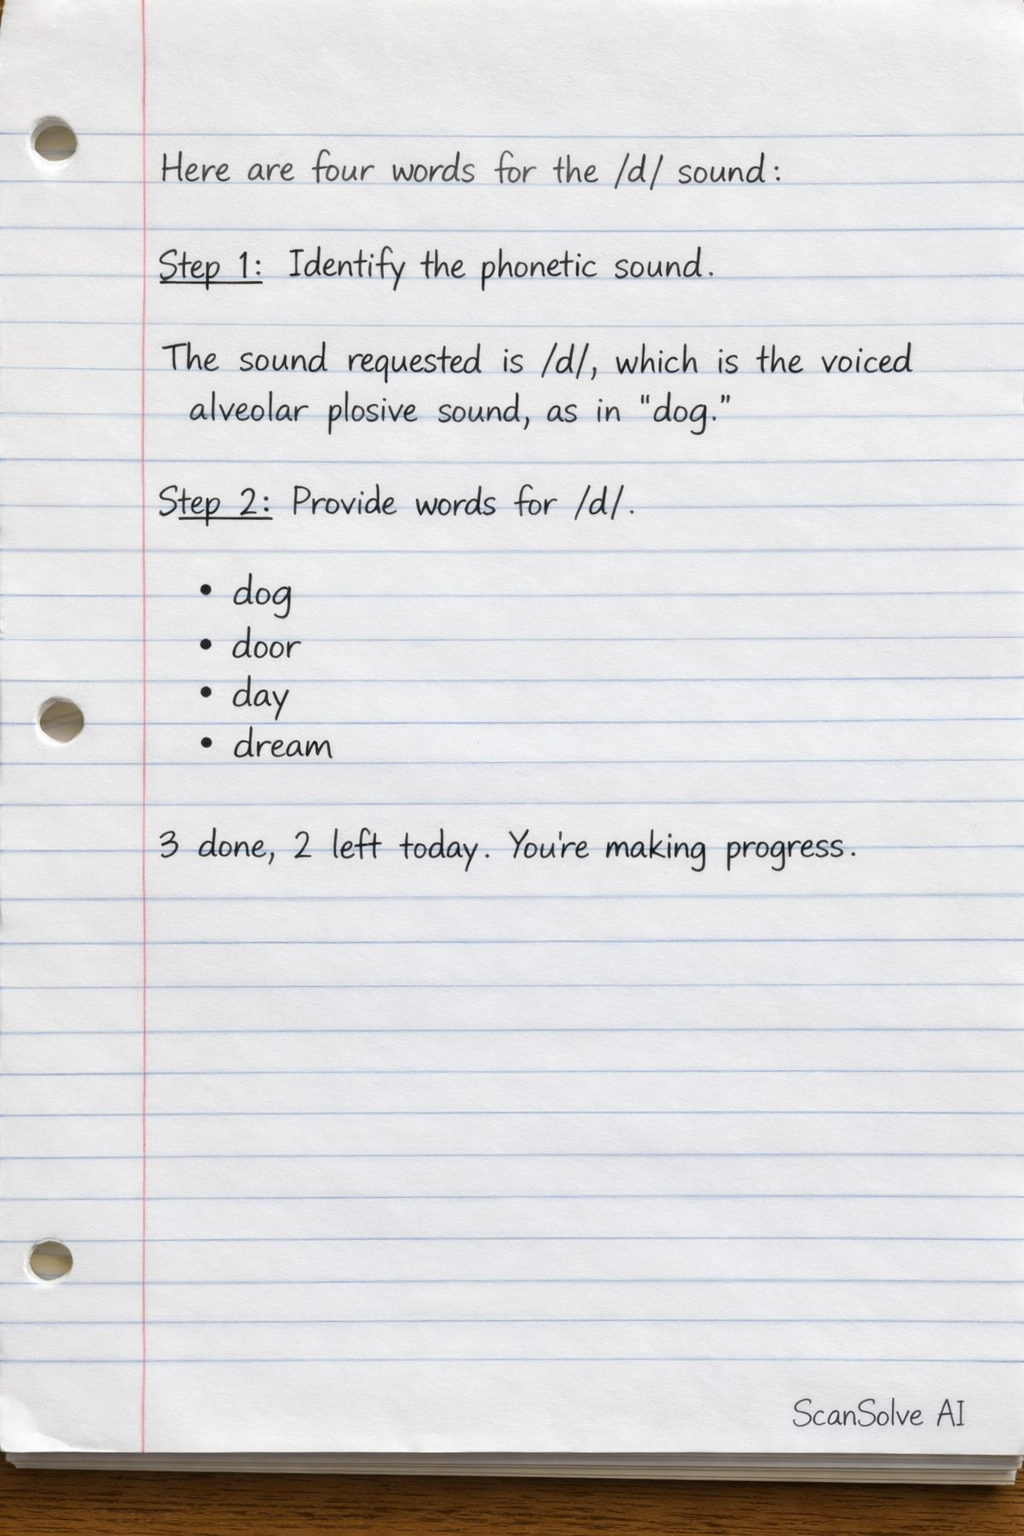 Here are four words for the /d/ sound:
Step 1: Identify the phonetic sound.
The sound requested is /d/, which is the voiced
alveolar plosive sound, as in "dog."
Step 2: Provide words for /d/.
• dog
• door
• day
• dream
3 done, 2 left today. You're making progress.
ScanSolve AI